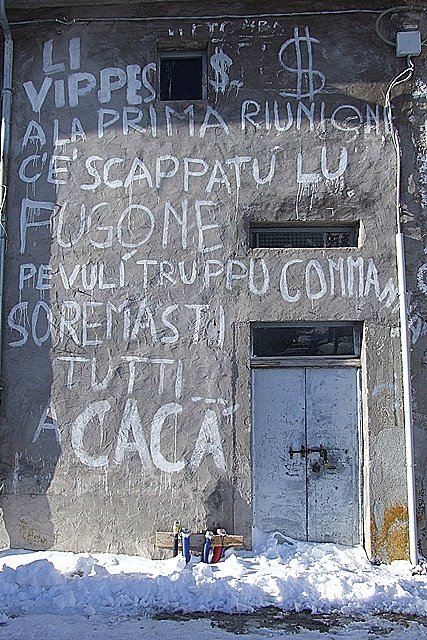 LI
VIPPES $ $
A LA PRIMA RIUNIONE
C'E' SCAPPATU LU
FUGONE
PE VULÍ TRUPPU COMMANNA
SO REMASTI
TUTTI
A CACÀ